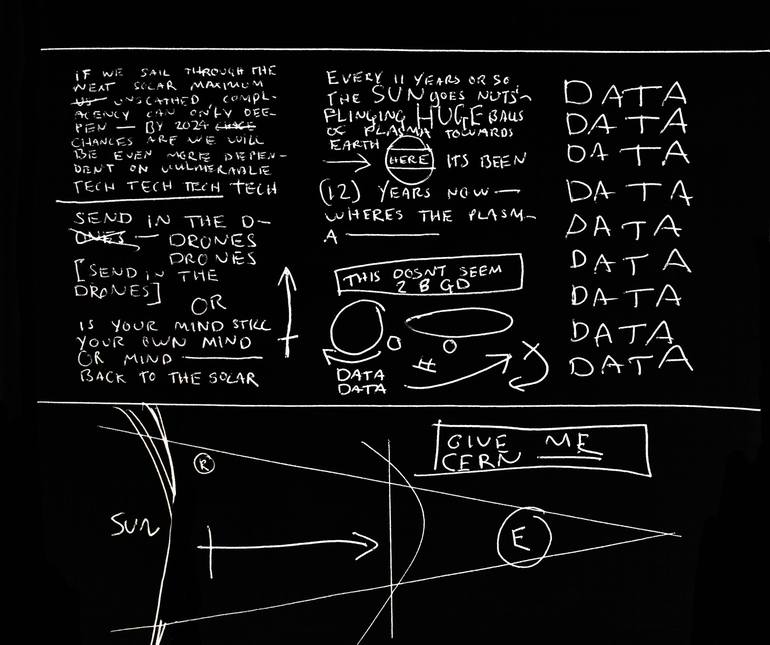 IF WE SAIL THROUGH THE
NEXT SOLAR MAXIMUM
UNSCATHED, COMPL-
ACENCY CAN ONLY DEE-
PEN — BY 2024
CHANCES ARE WE WILL
BE EVEN MORE DEPEN-
DENT ON VULNERABLE
TECH TECH TECH TECH
SEND IN THE D-
ONES — DRONES
DRONES
[SEND IN THE
DRONES]
OR
IS YOUR MIND STILL
YOUR OWN MIND
OR MIND —
BACK TO THE SOLAR
EVERY 11 YEARS OR SO
THE SUN GOES NUTS
FLINGING HUGE BALLS
OF PLASMA TOWARDS
EARTH
HERE ITS BEEN
(12) YEARS NOW —
WHERES THE PLASM-
A —
THIS DOSNT SEEM
2 B GD
DATA
DATA
#
X
DATA
DATA
DATA
DATA
DATA
DATA
DATA
DATA
DATA
GIVE ME
CERN
R
SUN
E